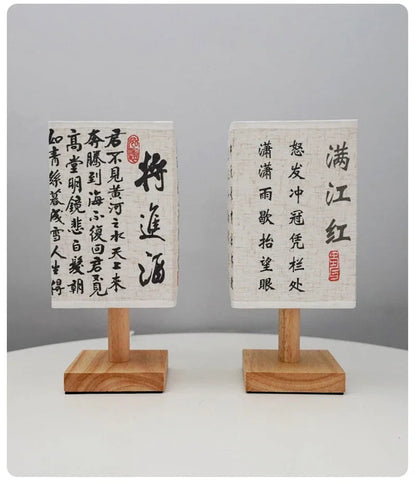 將進酒
君不見黃河之水天上来
奔騰到海不復回君不見
高堂明鏡悲白髮朝
如青絲暮成雪人生得
满江红
怒发冲冠凭栏处
潇潇雨歇抬望眼